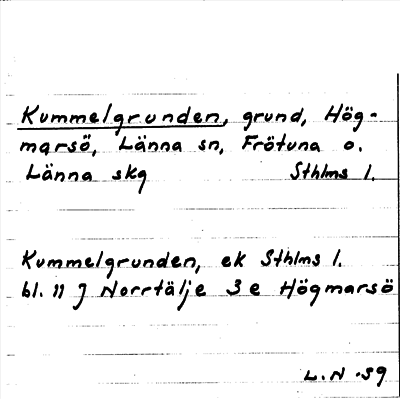 Kummelgrunden, grund, Hög-
marsö, Länna sn, Frötuna o.
Länna skg Sthlms l.
Kummelgrunden, ek Sthlms l.
bl. 11 J Norrtälje 3e Högmarsö
L.N -39